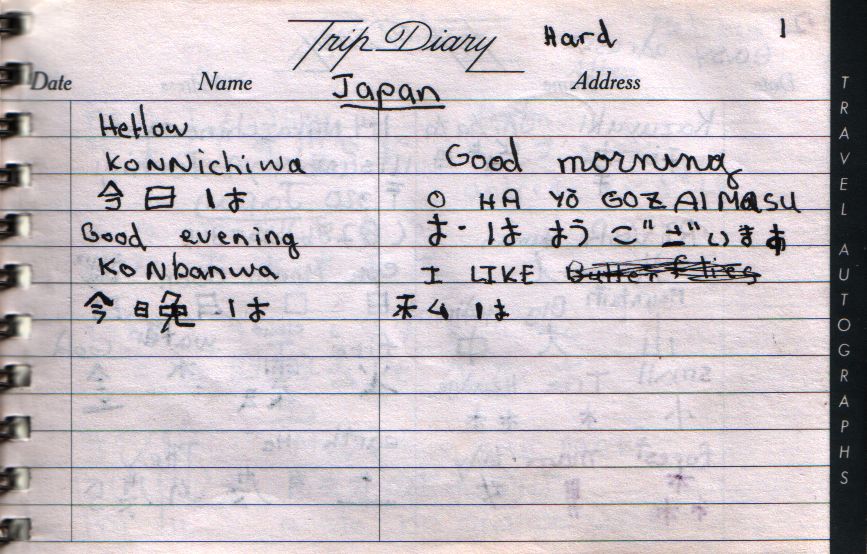 Trip Diary Hard 1
Date Name Address
Japan
Hellow
KONNichiwa
今日は
Good evening
KoNbanwa
今晩は
Good morning
O HA YŌ GOZAIMASU
おはようございます
I LIKE
私は
TRAVEL AUTOGRAPHS